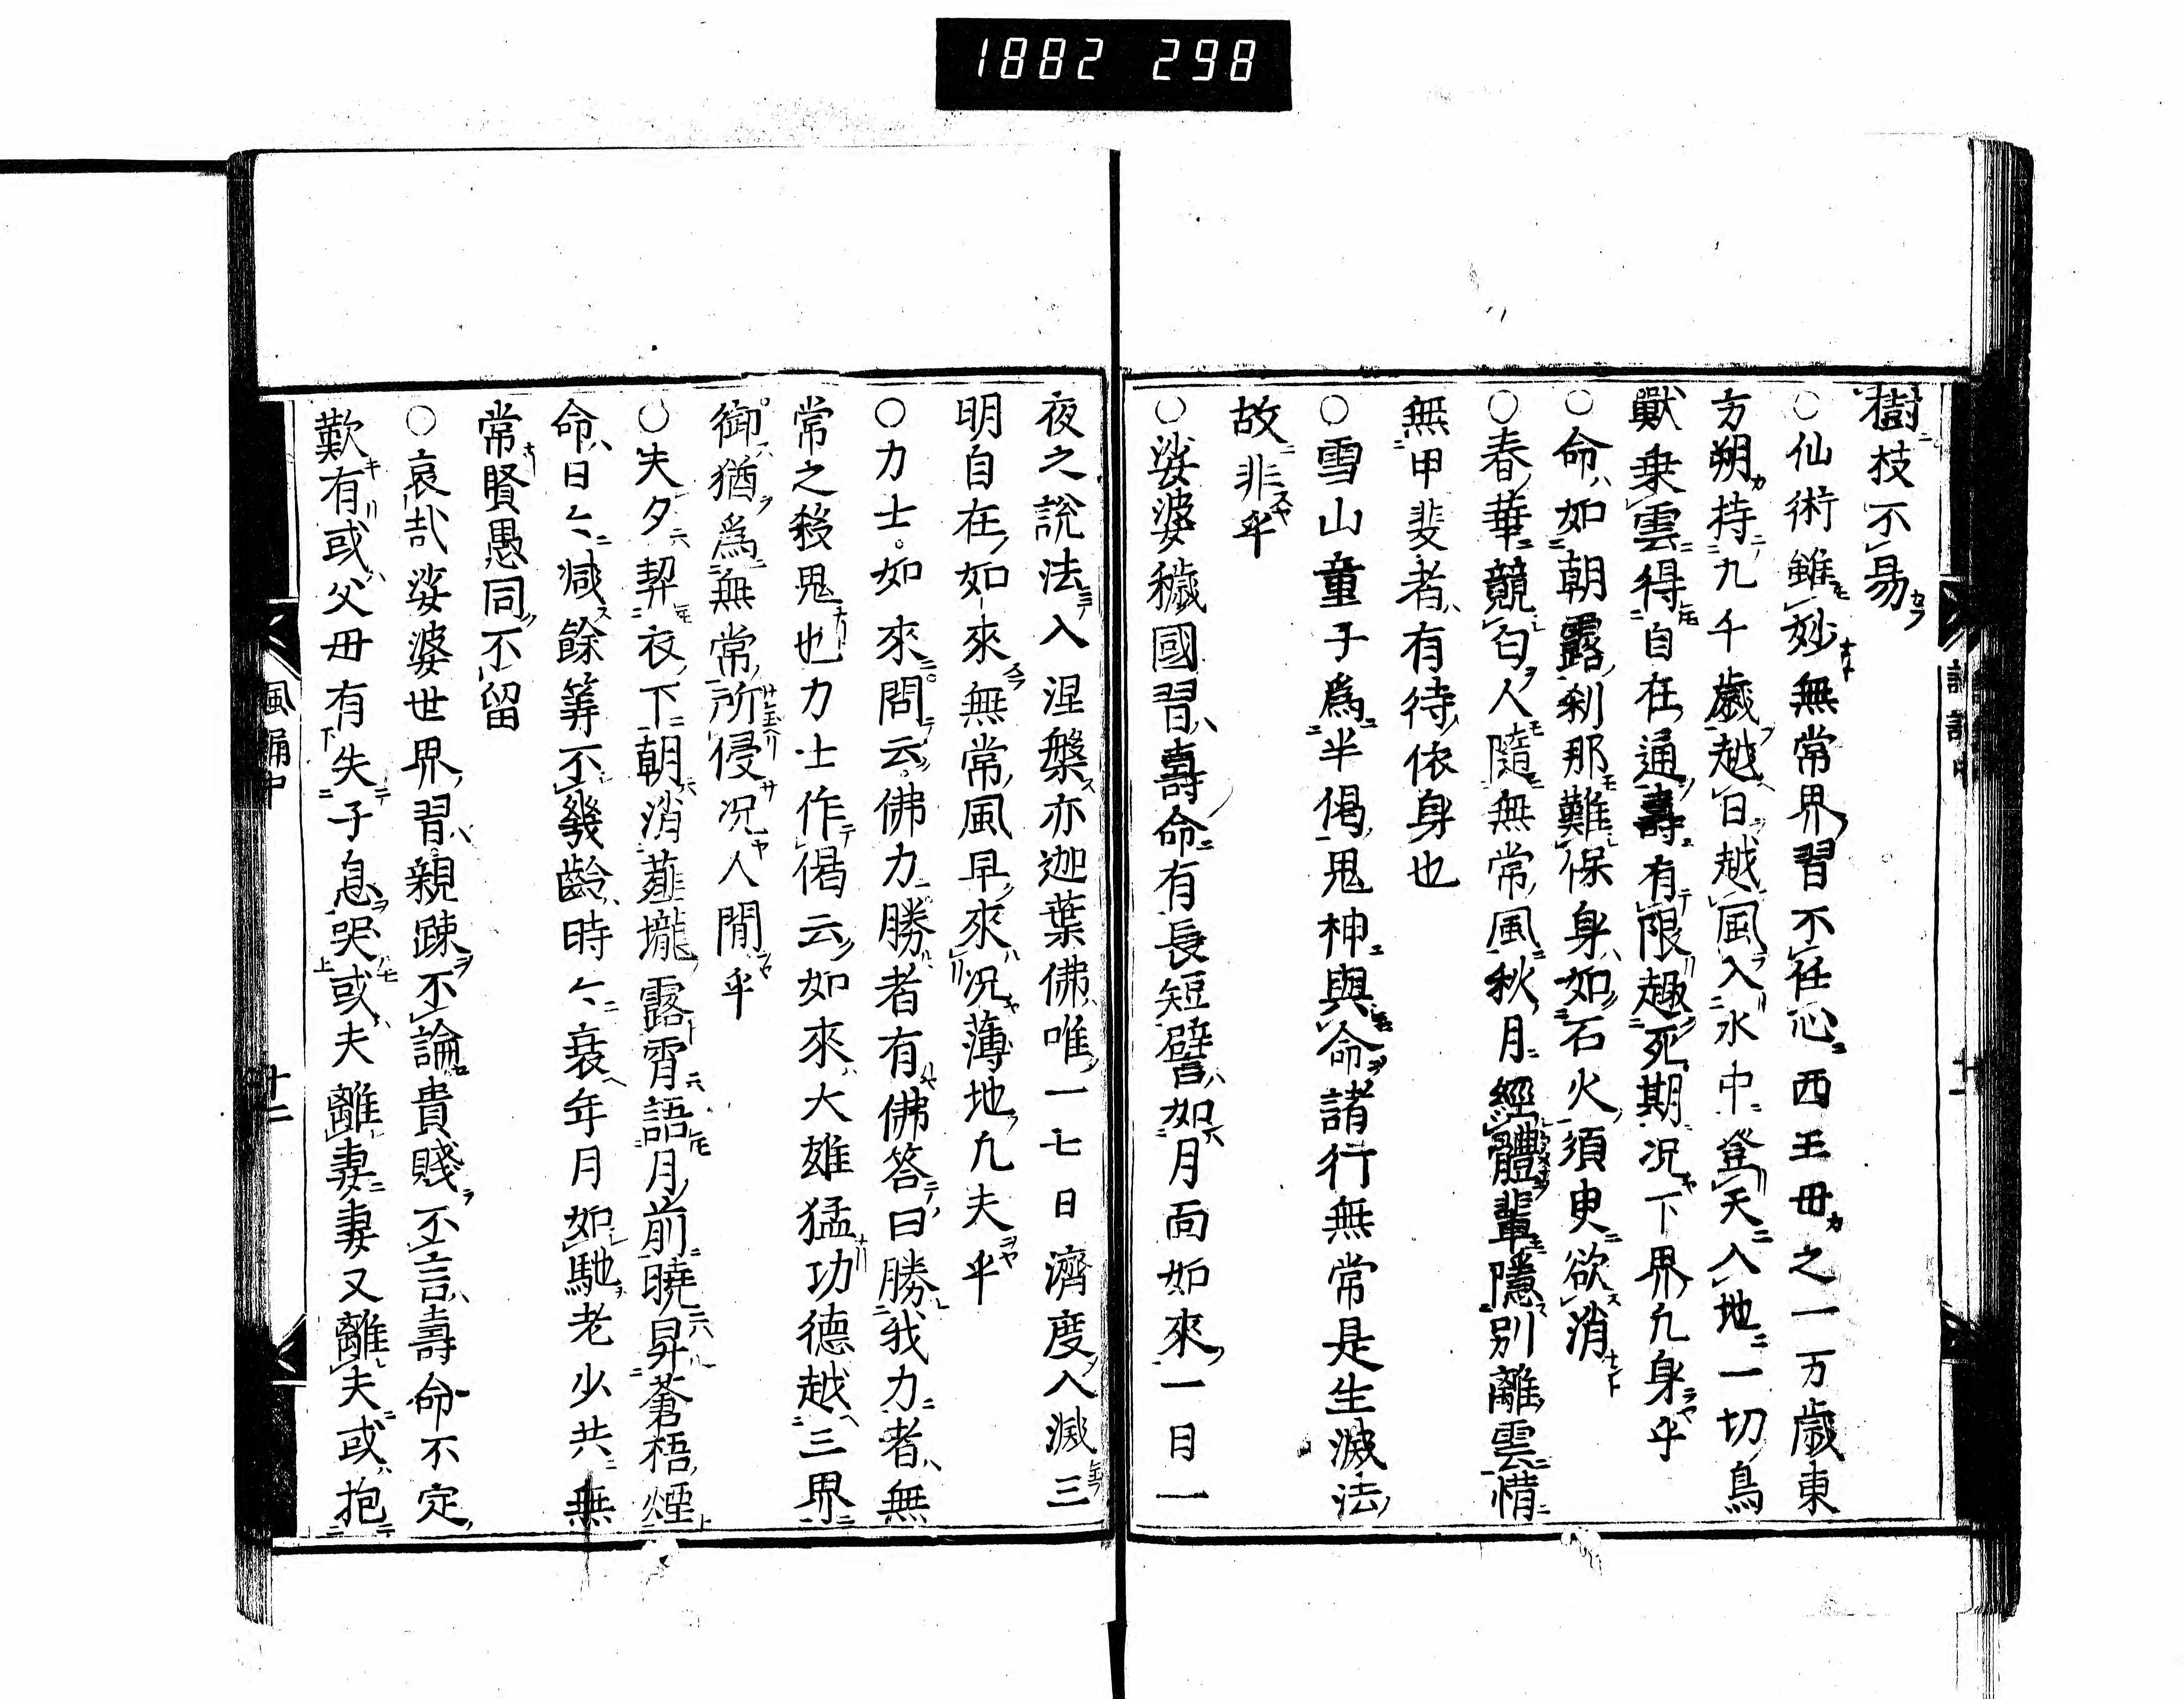 1882 298
樹枝不易
○仙術雖妙無常界習不任心西王毋之一万歳東
方朔持九千歳越日越風入水中登天入地一切鳥
獸乗雲得自在通壽有限趣死期况下界凢身乎
○命如朝露刹那難保身如石火須臾欲消
○春華競匂人隨無常風秋月經體輩隱別離雲惜
無甲斐者有待依身也
○雪山童子爲半偈鬼神與命諸行無常是生滅法
故非乎
○娑婆穢國習壽命有長短譬如月面如來一日一
夜之說法入涅槃亦迦葉佛唯一七日濟度入滅三
明自在如來無常風早來况薄地凢夫乎
○力士如來問云佛力勝者有佛答曰勝我力者無
常之殺鬼也力士作偈云如來大雄猛功德越三界
御猶爲無常所侵况人間乎
○夫夕契衣下朝消薤壠露宵語月前曉昇蒼梧煙
命日々減餘筭不幾齡時々衰年月如馳老少共無
常賢愚同不留
○哀哉娑婆世界習親踈不論貴賤不言壽命不定
歎有或父毋有失子息哭或夫離妻妻又離夫或抱
風誦中
十二